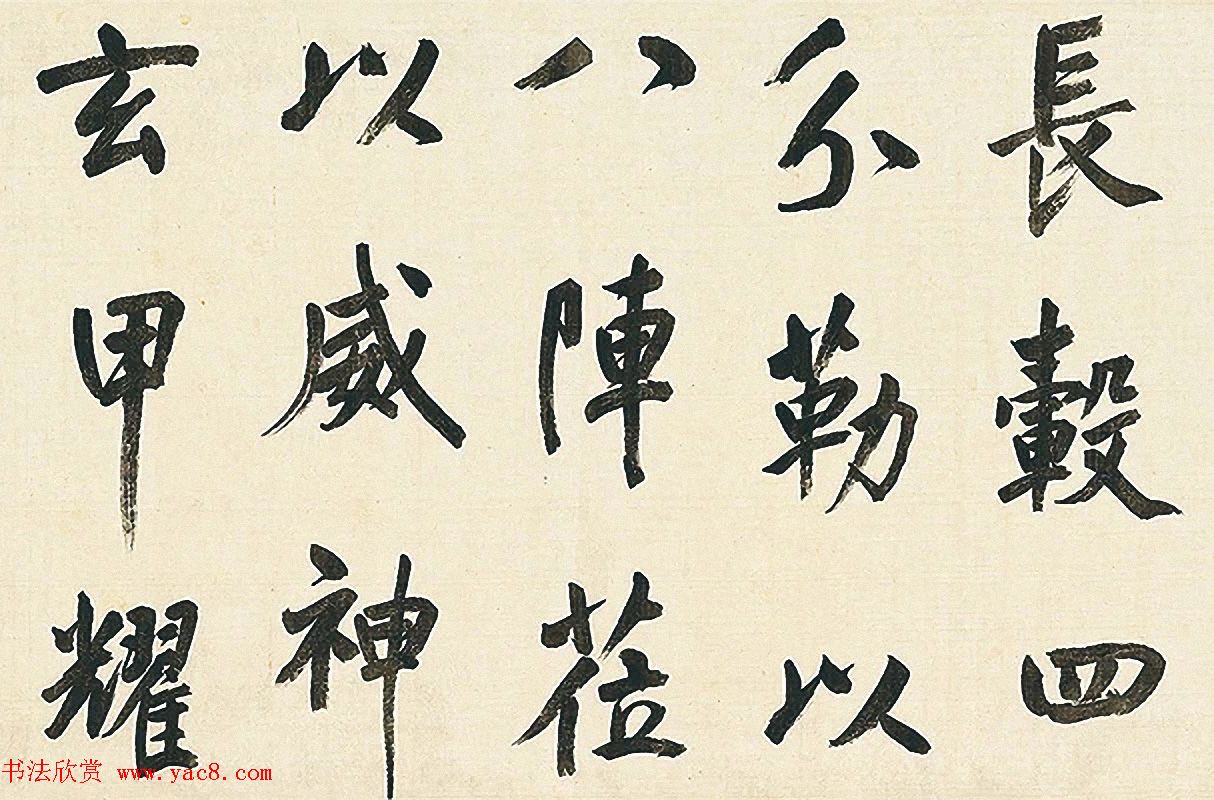 長轂四
分勒以
八陣莅
以威神
玄甲耀
书法欣赏 www.yac8.com